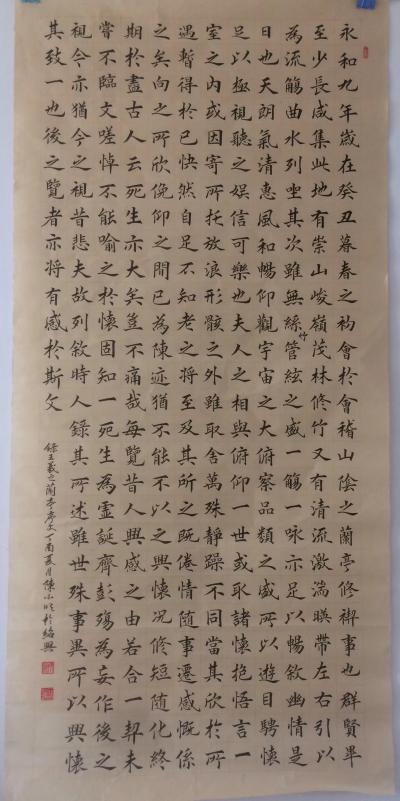 永和九年歲在癸丑暮春之初會於會稽山陰之蘭亭修禊事也群賢畢
至少長咸集此地有崇山峻嶺茂林修竹又有清流激湍暎帶左右引以
為流觴曲水列坐其次雖無絲竹管絃之盛一觴一咏亦足以暢敘幽情是
日也天朗氣清惠風和暢仰觀宇宙之大俯察品類之盛所以遊目騁懷
足以極視聽之娛信可樂也夫人之相與俯仰一世或取諸懷抱悟言一
室之內或因寄所托放浪形骸之外雖取舍萬殊靜躁不同當其欣於所
遇暫得於己快然自足不知老之將至及其所之既倦情隨事遷感慨係
之矣向之所欣俛仰之間已為陳迹猶不能不以之興懷況修短隨化終
期於盡古人云死生亦大矣豈不痛哉每覽昔人興感之由若合一契未
嘗不臨文嗟悼不能喻之於懷固知一死生為虛誕齊彭殤為妄作後之
視今亦猶今之視昔悲夫故列敘時人錄其所述雖世殊事異所以興懷
其致一也後之覽者亦將有感於斯文
錄王羲之蘭亭序文丁酉夏月陳小於紹興